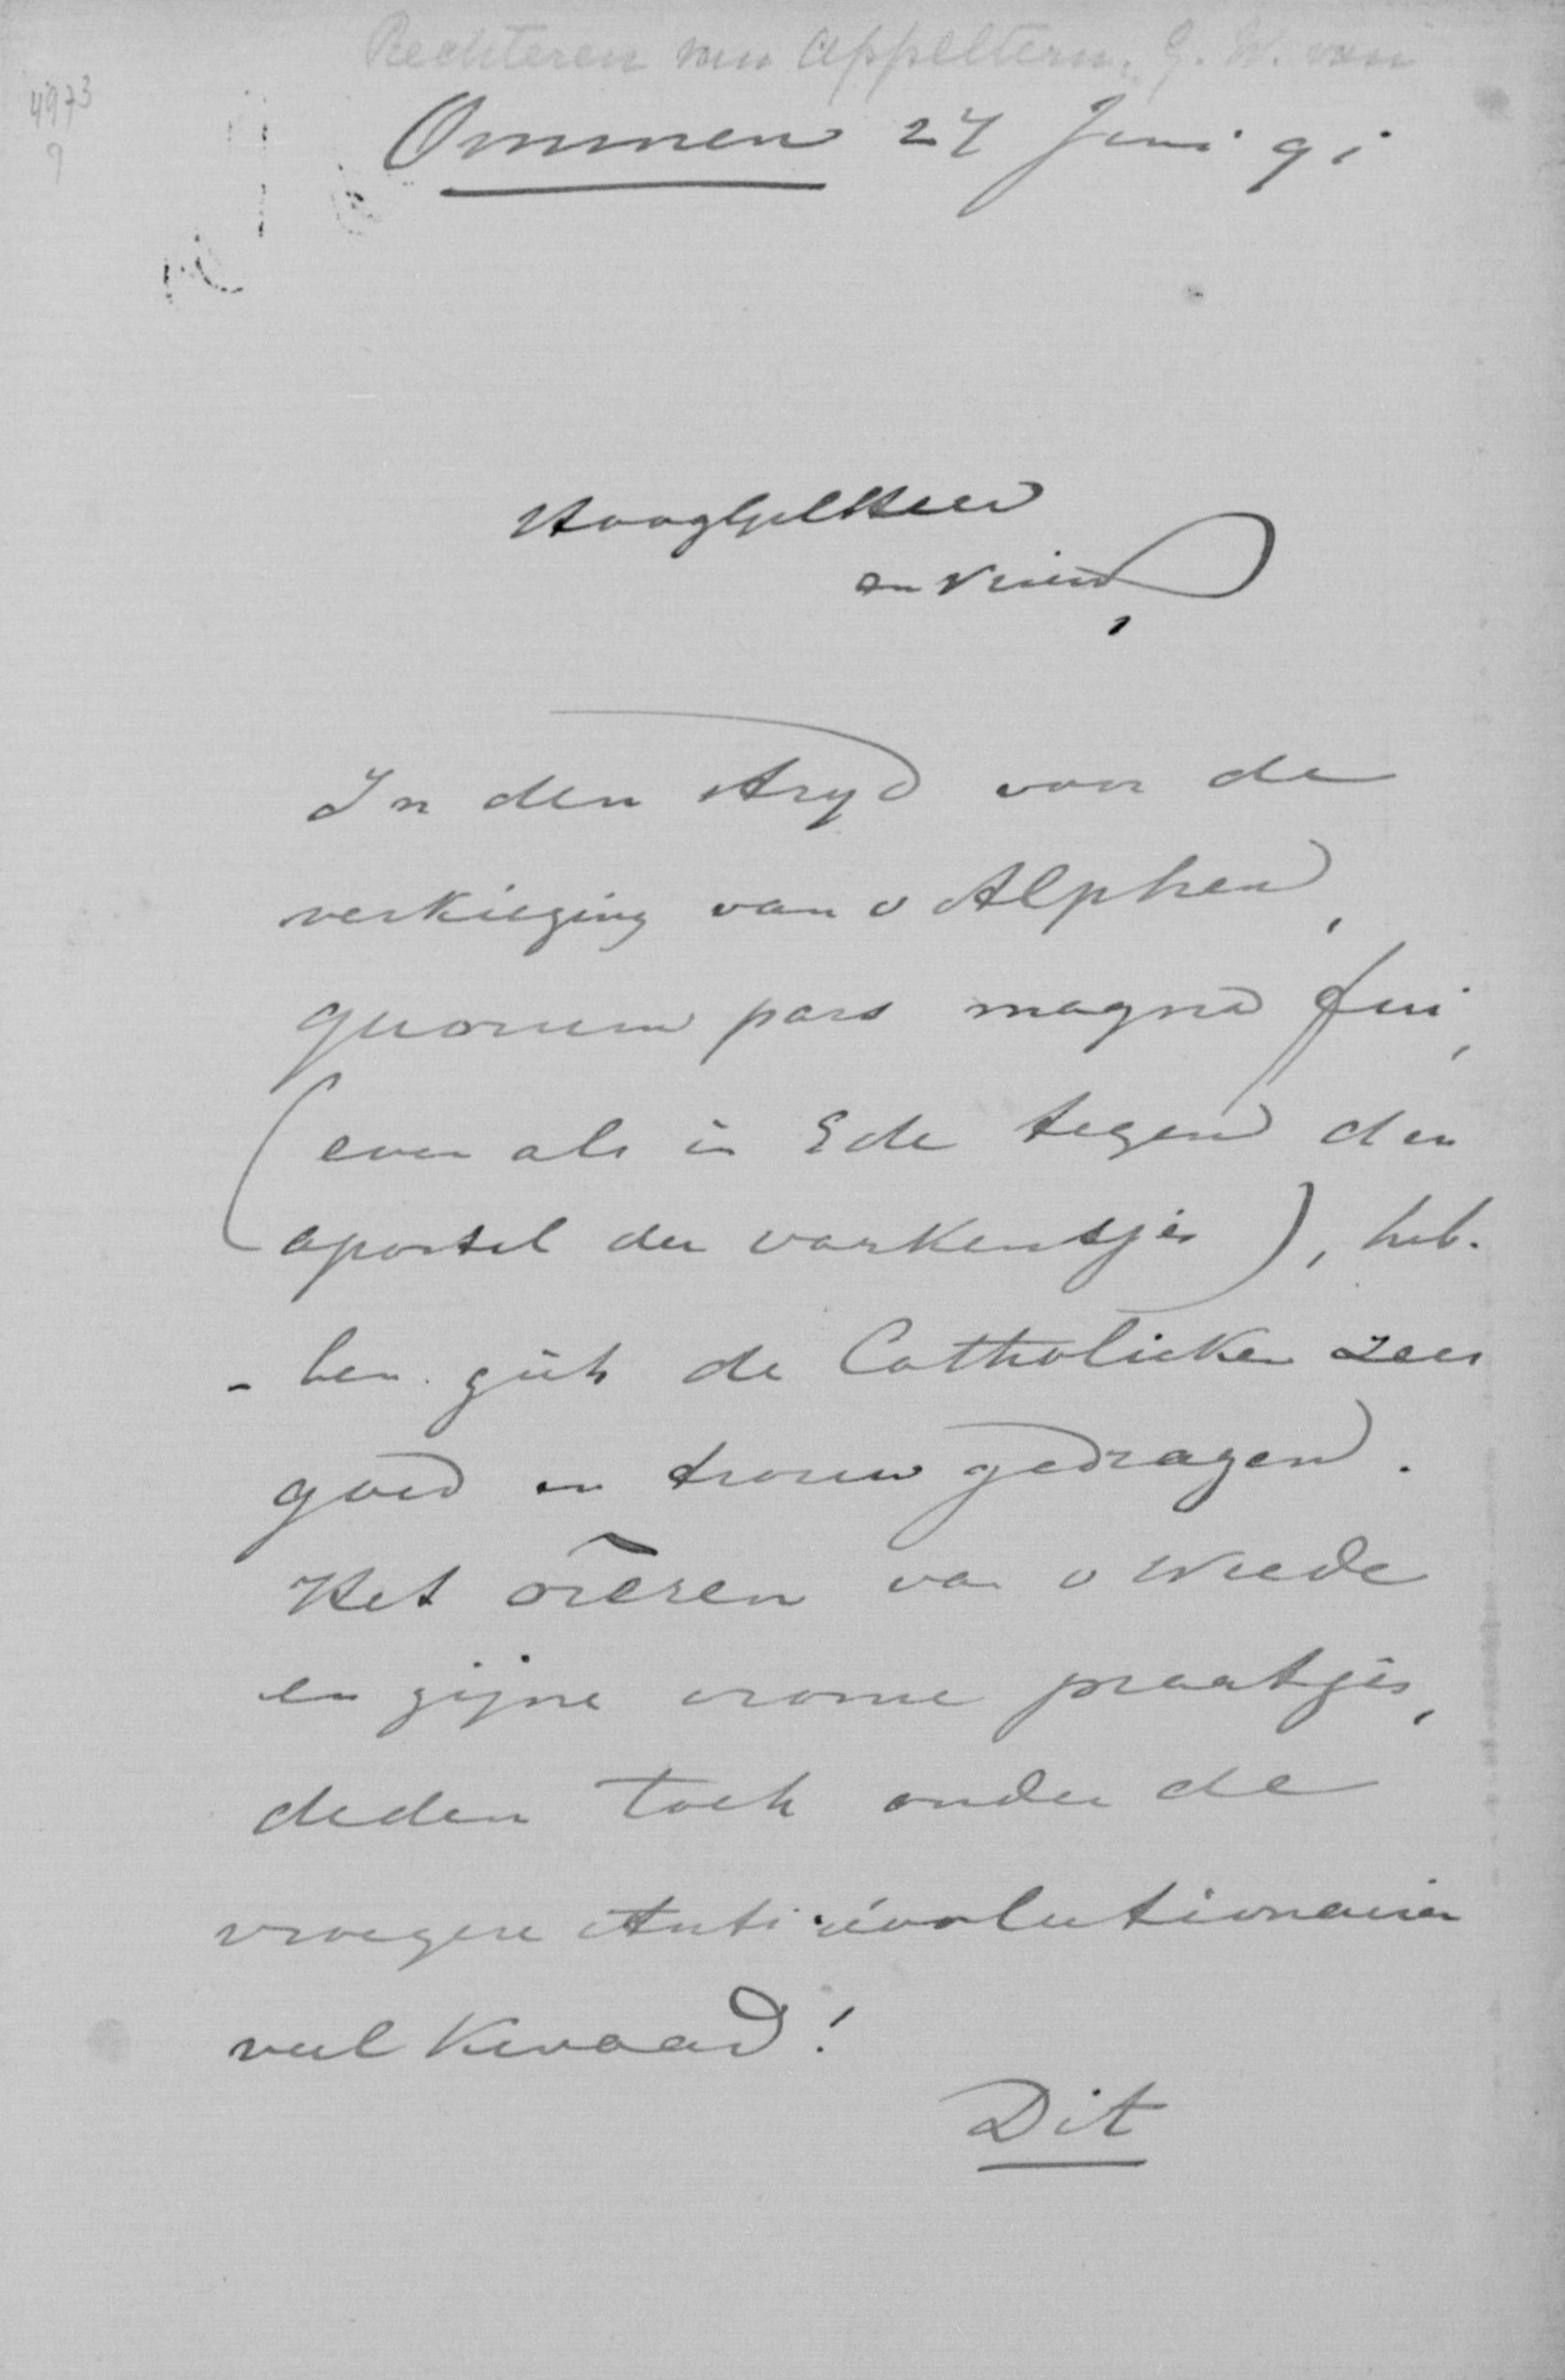 Rechteren van Appeltern, G. W. van
4973
9
Ommen 27 Juni 91
HooghGelHeer
en Vriend,
In den stryd voor de
verkiezing van v Alphen,
quorum pars magna fui,
(even als in Ede tegen den
apostel der varkentjes), heb-
-ben zich de Catholieken zeer
goed en trouw gedragen.
Het oreren van v Weede
en zijne vrome praatjes,
deden toch onder de
vroegere Antirévolutionairen
veel kwaad!
Dit